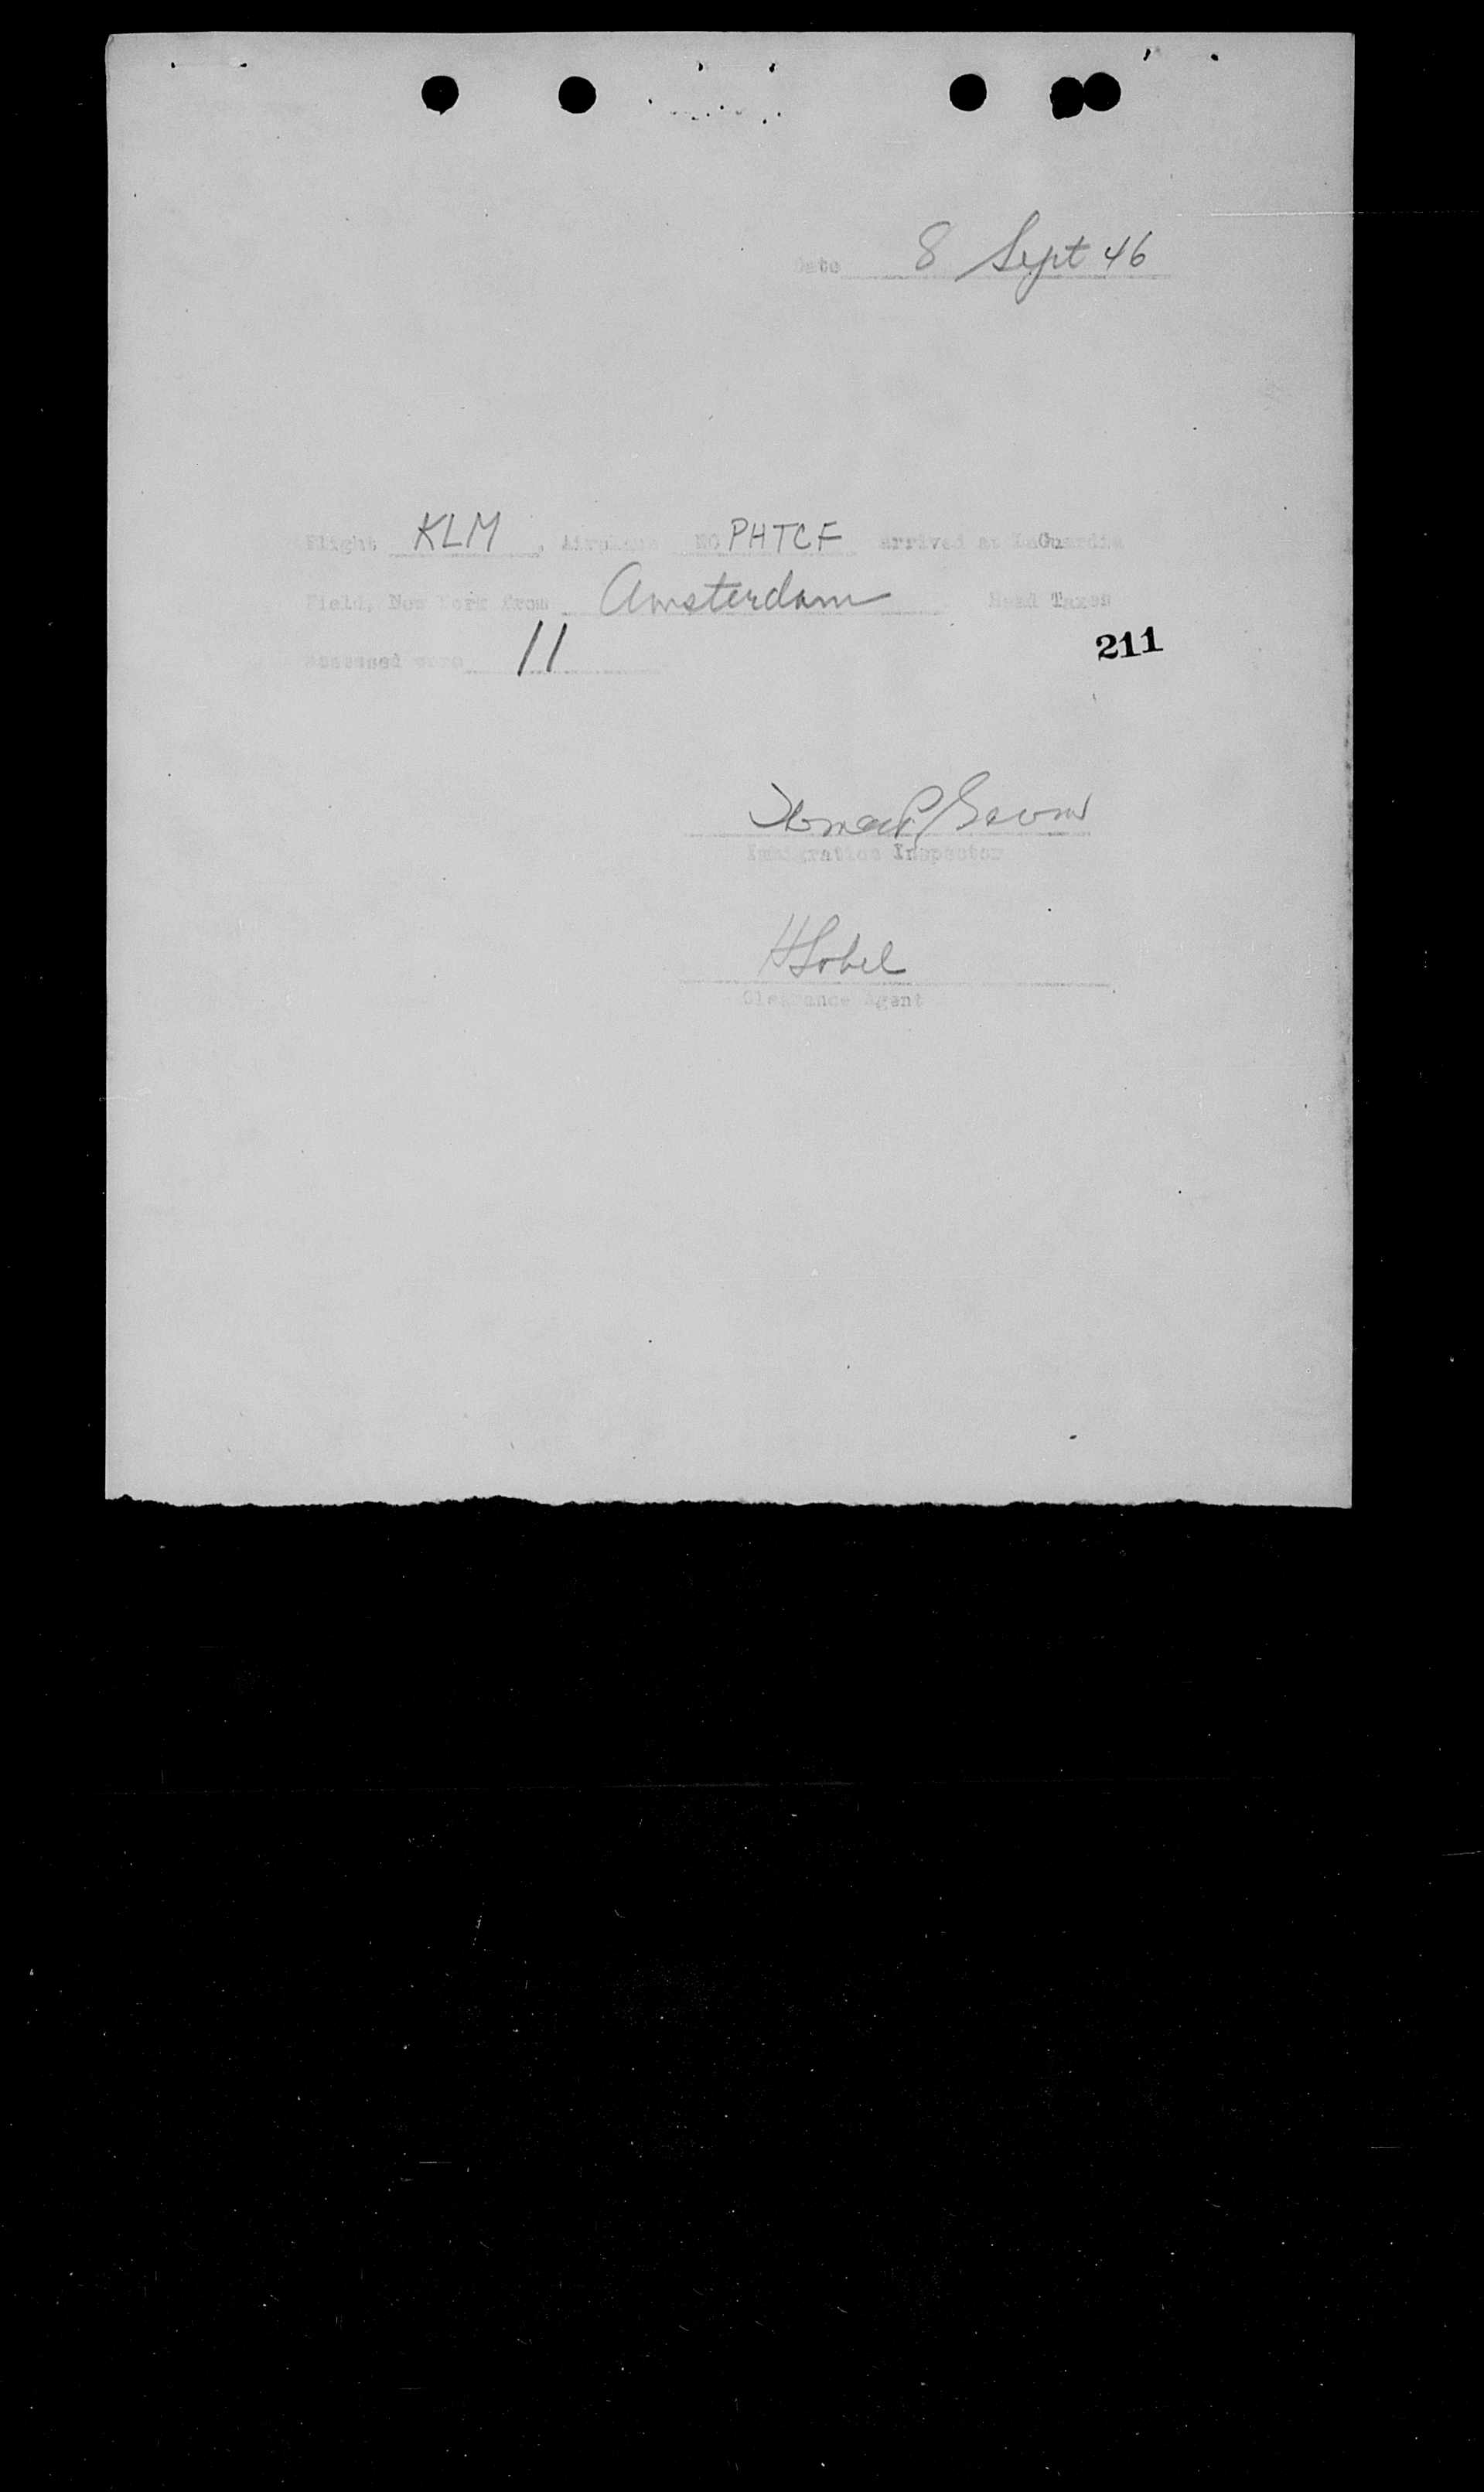 Date 8 Sept 46
Flight KLM, Airplane NC PHTCF arrived at LaGuardia
Field, New York from Amsterdam Head Taxes
assessed were 11
211
Immigration Inspector
H Sobel
Clearance Agent